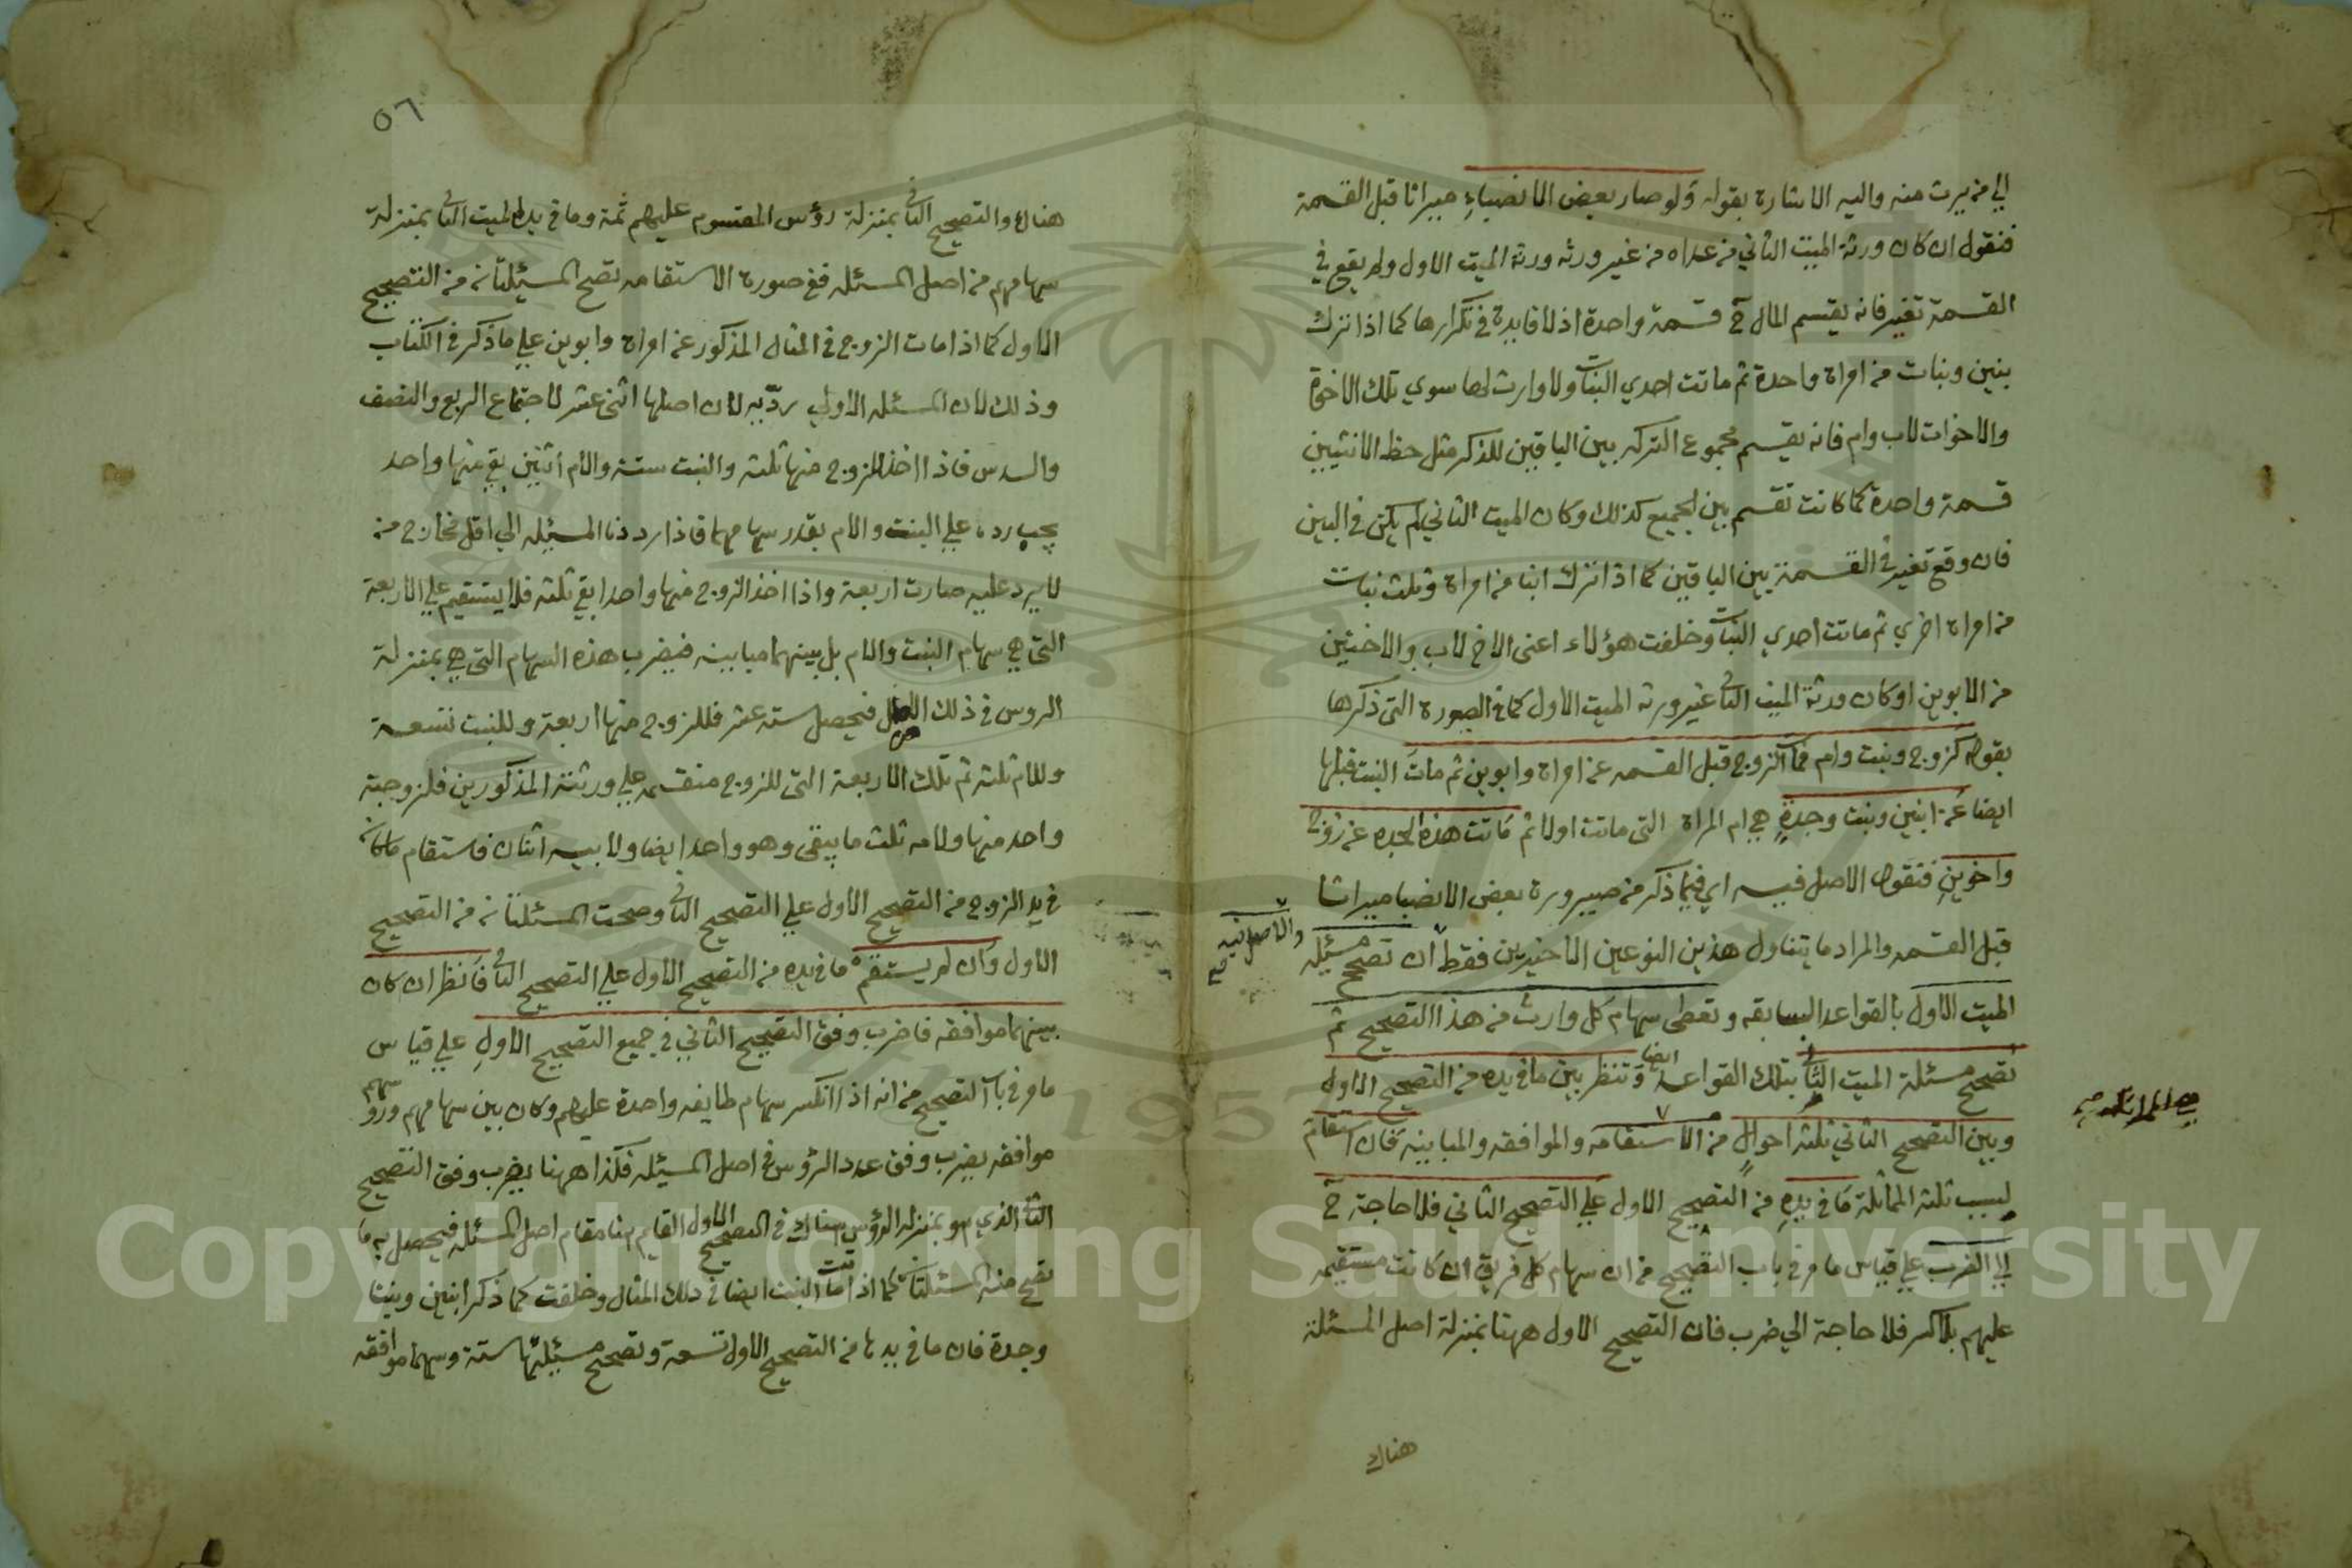 الي من يرث منه واليه الاشارة بقوله ولو صار بعض الانصباء ميراثا قبل القسمة
فنقول ان كان ورثة الميت الثاني من عداه من غير ورثه ورثة الميت الاول ولم يقع في
القسمة تغير فانه يقسم المال ح قسمة واحدة اذ لا فايدة في تكرارها كما اذا ترك
بنين وبنات من امراة واحدة ثم ماتت احدي البنات ولا وارث لها سوي تلك الاخوة
والاخوات لاب وام فانه يقسم مجموع التركه بين الباقين للذكر مثل حظ الانثيين
قسمة واحدة كما كانت تقسم بين الجميع كذلك وكان الميت الثاني لم يكن في البين
فان وقع تغير في القسمة بين الباقين كما اذا ترك ابنا من امراة وثلث بنات
من امراة اخري ثم ماتت احدي البنات وخلفت هؤلاء اعني الاخ لاب والاختين
من الابوين او كان ورثة الميت الثاني غير ورثه الميت الاول كما في الصورة التي ذكرها
بقوله كزوج وبنت وام فمات الزوج قبل القسمه عن امراة وابوين ثم ماتت البنت قبلها
ايضا عن ابنين وبنت وجدة هي ام المراة التي ماتت اولا ثم ماتت هذه الجده عن زوج
واخوين فنقول الاصل فيه اي فيما ذكر من صيرورة بعض الانصبا ميراثا
قبل القسمه والمراد ما يتناول هذين النوعين الاخيرين فقط ان تصحح مسئله
والاصل فيه
الميت الاول بالقواعد السابقه وتعطي سهام كل وارث من هذا التصحيح ثم
تصحح مسئلة الميت الثاني بتلك القواعد ايضا وتنظر بين ما في يده من التصحيح الاول
وبين التصحيح الثاني ثلثه احوال من الاستقامه والموافقه والمباينه فان استقام
بسبب ثلثه المماثلة ما في يده من التصحيح الاول علي التصحيح الثاني فلا حاجة ح
الي الضرب علي قياس ما مر في باب التصحيح من ان سهام كل فريق ان كانت مستقيمه
عليهم بلا كسر فلا حاجة الي ضرب فان التصحيح الاول ههنا بمنزلة اصل المسئلة
هناك
٥٦
هناك والتصحيح الثاني بمنزلة رؤس المقسوم عليهم ثمة وما في يد الميت الثاني بمنزلة
سهامهم من اصل المسئله ففي صورة الاستقامه تصح المسئلتان من التصحيح
الاول كما اذا مات الزوج في المثال المذكور عن امراة وابوين علي ما ذكر في الكتاب
وذلك لان المسئله الاولي ردّيه لان اصلها اثني عشر لاجتماع الربع والنصف
والسدس فاذا اخذ الزوج منها ثلثه والبنت ستة والام اثنين بقي منها واحد
يجب رده علي البنت والام بقدر سهامهما فاذا رددنا المسئله الي اقل مخارج من
لا يرد عليه صارت اربعة واذا اخذ الزوج منها واحدا بقي ثلثه فلا يستقيم علي الاربعة
التي هي سهام البنت والام بل بينهما مباينه فيضرب هذه السهام التي هي بمنزلة
الروس في ذلك الاصل فيحصل سته عشر فللزوج منها اربعة وللبنت تسعة
وللام ثلثه ثم تلك الاربعة التي للزوج منقسمه علي ورثته المذكورين فلزوجته
واحد منها ولامه ثلث ما يبقي وهو واحد ايضا ولابيه اثنان فاستقام ما كان
في يد الزوج من التصحيح الاول علي التصحيح الثاني وصحت المسئلتان من التصحيح
الاول وان لم يستقم ما في يده من التصحيح الاول علي التصحيح الثاني فانظر ان كان
بينهما موافقه فاضرب وفق التصحيح الثاني في جميع التصحيح الاول علي قياس
ما مر في باب التصحيح من انه اذا انكسر سهام طايفه واحدة عليهم وكان بين سهامهم ورؤسهم
موافقه يضرب وفق عدد الرؤس في اصل المسئله فكذا ههنا يضرب وفق التصحيح
الثاني الذي هو بمنزله الرؤس هناك في التصحيح الاول القايم هنا مقام اصل المسئله فيحصل به ما
تصح منه المسئلتان كما اذا ماتت البنت ايضا في ذلك المثال وخلفت كما ذكر ابنين وبنتا
وجدة فان ما في يدها من التصحيح الاول تسعة وتصحيح مسئلتها ستة وبينهما موافقه